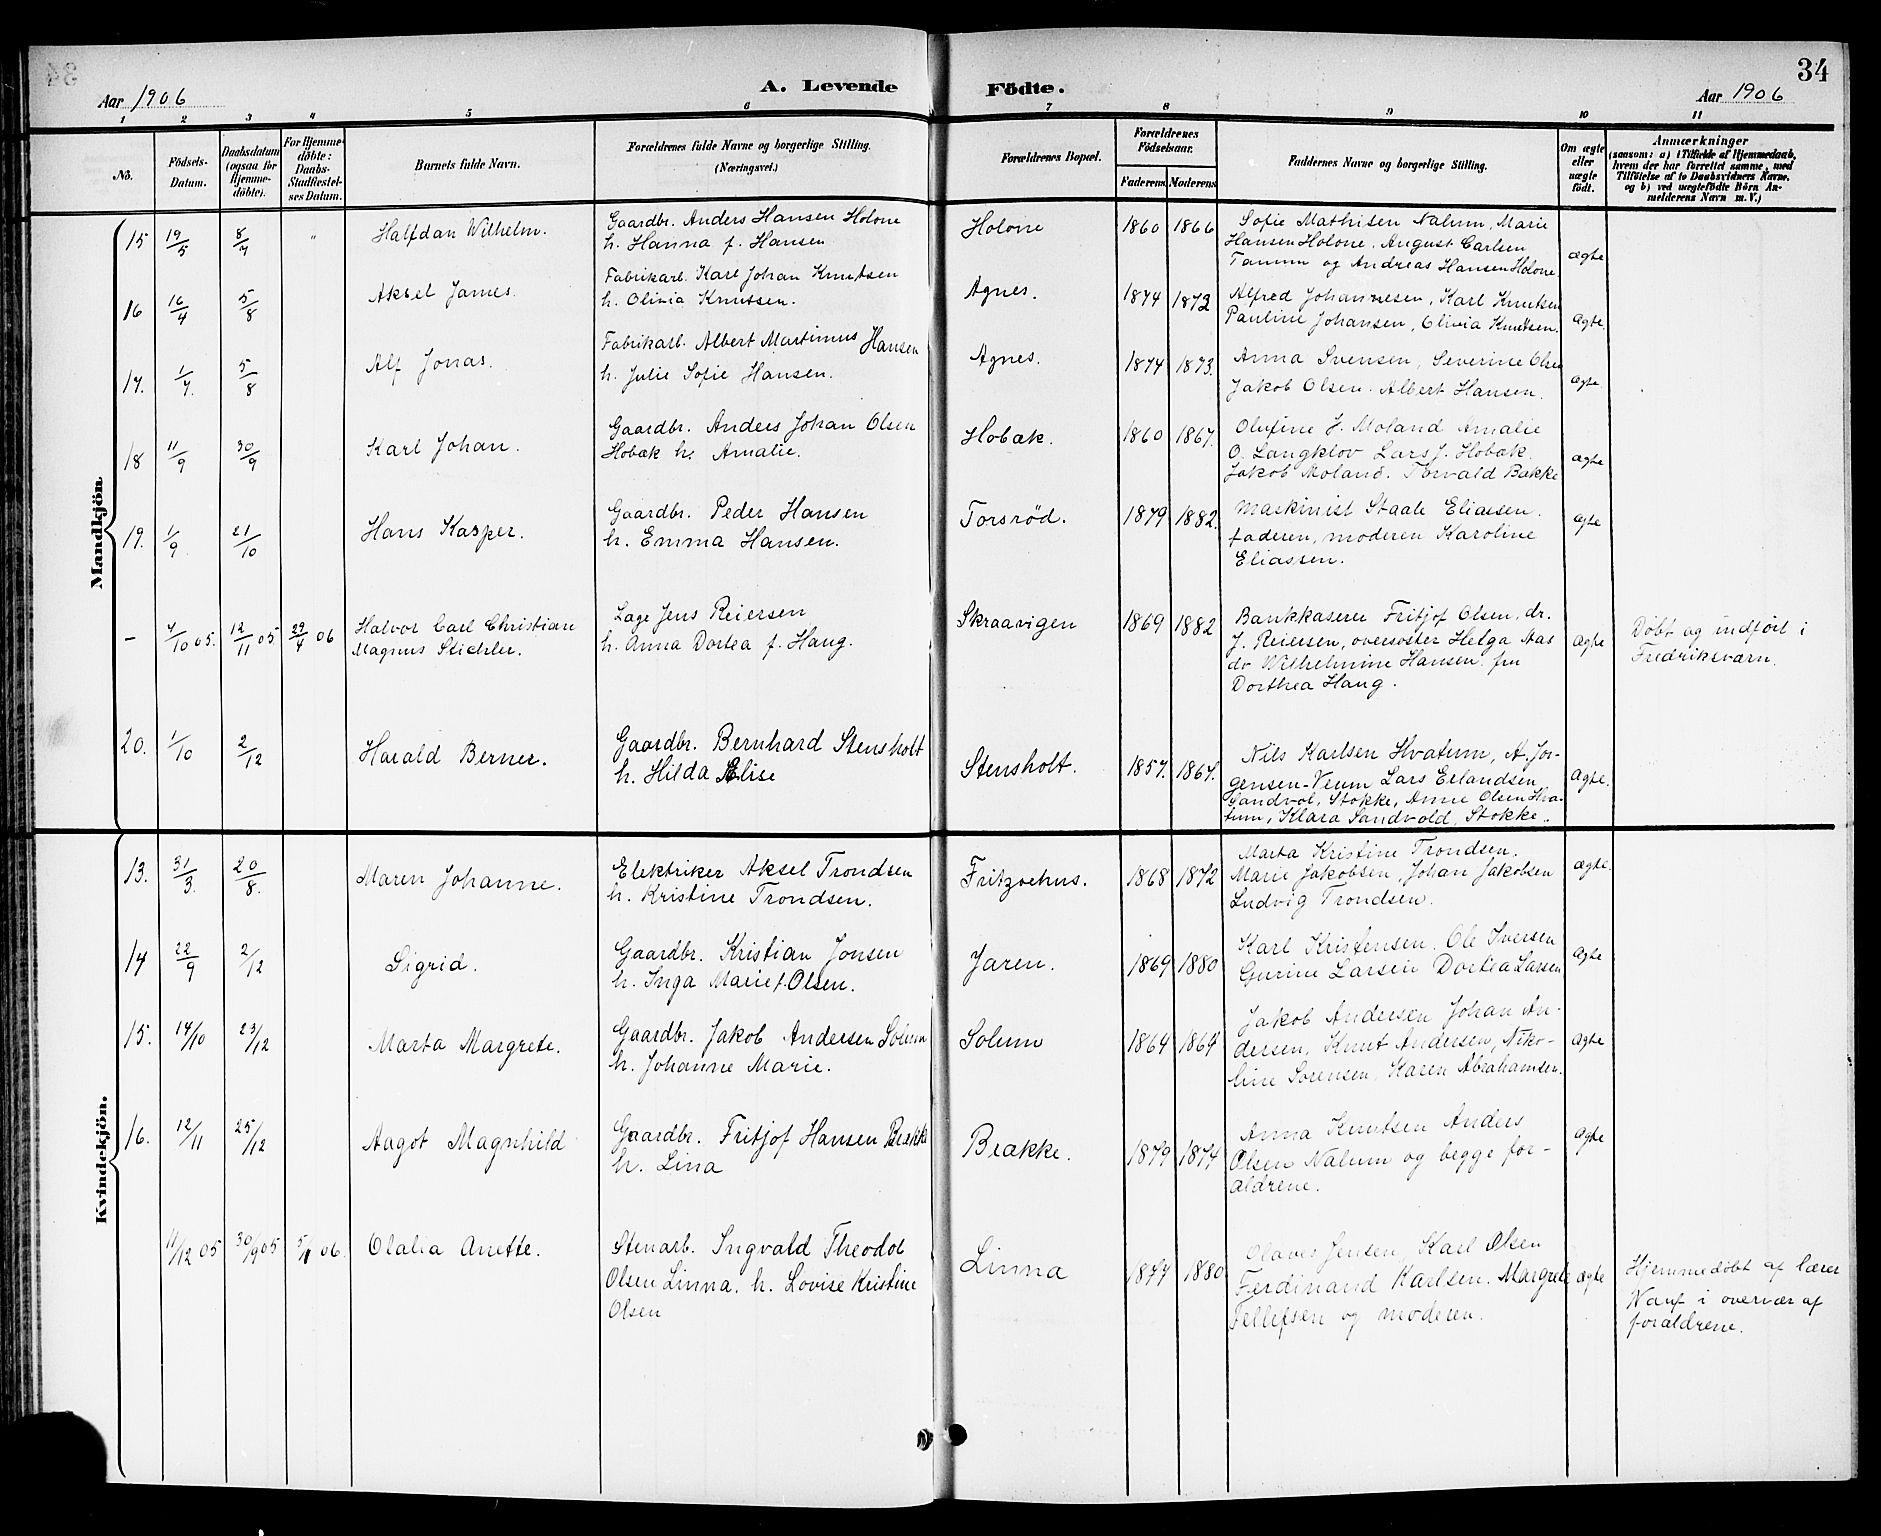 34
Aar 1906
A. Levende Födte.
Aar 1906
1 2 3 4 5 6 7 8 9 10 11
No.
Födsels-Datum.
Daabsdatum (ogsaa for Hjemme-döbte).
For Hjemme-döbte: Daabs-Stadfæstel-ses Datum.
Barnets fulde Navn.
Forældrenes fulde Navne og borgerlige Stilling.
(Næringsvei.)
Forældrenes Bopæl.
Forældrenes Födselsaar.
Faderens Moderens
Faddernes Navne og borgerlige Stilling.
Om ægte eller uægte födt.
Anmærkninger
(saasom: a) i Tilfælde af Hjemmedaab,
hvem der har forrettet samme, med
Tilföielse af to Daabsvidners Navne,
og b) ved uægtefödte Börn An-
melderens Navn m. V.)
Mandkjön
15 19/5 8/7 " Halfdan Wilhelm. Gaardbr. Anders Hansen Holone
h. Hanna f. Hansen
Holone 1860 1866 Sofie Mathisen Nalum, Marie
Hansen Holone. August Carlsen
Tanum og Andreas Hansen Holone
ægte
16 16/4 5/8 Aksel James. Fabrikarb. Karl Johan Knutsen
h. Olivia Knutsen.
Agnes. 1874 1872 Alfred Johannesen, Karl Knutsen
Pauline Johansen, Olivia Knutsen.
ægte
17. 1/7. 5/8 Alf Jonas. Fabrikarb. Albert Martinius Hansen
h. Julie Sofie Hansen.
Agnes. 1874 1873. Anna Svensen, Severine Olsen
Jakob Olsen. Albert Hansen.
ægte
18 11/9 30/9 Karl Johan. Gaardbr. Anders Johan Olsen
Hobæk h. Amalie.
Hobæk. 1860 1867. Olufine J. Moland Amalie
O. Langklov Lars J. Hobæk.
Jakob Moland. Torvald Bakke
ægte
19. 1/9 21/10 Hans Kasper. Gaardbr. Peder Hansen
h. Emma Hansen.
Torsrød. 1879 1882. Maskinist Staale Eliassen.
faderen, moderen Karoline
Eliassen.
ægte
- 7/10 05. 12/11 05 29/4 06 Halvor Carl Christian
Magnus Stichler.
Læge Jens Reiersen
h. Anna Dortea f. Haug.
Skraavigen 1869 1882 Bankkaserer Fritjof Olsen, dr.
J. Reiersen, oversøster Helga Aas
do Wilhelmine Hansen. fru
Dorthea Haug.
ægte
Døbt og indført i
Fredriksværn.
20. 1/10 2/12 Harald Berner. Gaardbr. Bernhard Stensholt
h. Hilda Elise
Stensholt. 1857. 1867. Nils Karlsen Hvatum, A. Jør-
gensen-Veum Lars Erlandsen
Sandvol, Stokke, Anne Olsen Hva-
tum, Klara Sandvold, Stokke.
Ægte.
Kvindekjön.
13. 31/3. 20/8. Maren Johanne. Elektriker Aksel Trondsen
h. Kristine Trondsen.
Fritzøehus. 1868 1872 Marta Kristine Trondsen.
Marie Jakobsen, Johan Jakobsen
Ludvig Trondsen.
ægte.
14 22/9 2/12 Sigrid. Gaardbr. Kristian Jonsen
h. Inga Marie f. Olsen.
Jaren. 1869 1880 Karl Kristensen. Ole Iversen
Gurine Larsen Dortea Larsen
Ægte
15. 14/10 23/12 Marta Margrete. Gaardbr. Jakob Andersen Solum
h. Johanne Marie.
Solum 1864 1864 Jakob Andersen Johan An-
dersen, Knut Andersen, Niko-
line Sørensen, Karen Abrahamsen.
Ægte
16. 12/11 25/12 Aagot Magnhild Gaardbr. Fritjof Hansen Brække
h. Lina
Brække. 1879 1874 Anna Knutsen Anders
Olsen Nalum og begge for-
ældrene.
Ægte
11/12 05 30/9 05 06. Olalia Anette. Stenarb. Ingvald Theodor
Olsen Linna. h. Lovise Kristine
Olsen
Linna 1877 1880 Olaves Jensen, Karl Olsen
Ferdinand Karlsen. Margrete
Tellefsen og moderen.
ægte
Hjemmedøbt af lærer
Wauf i overvær af
forældrene.